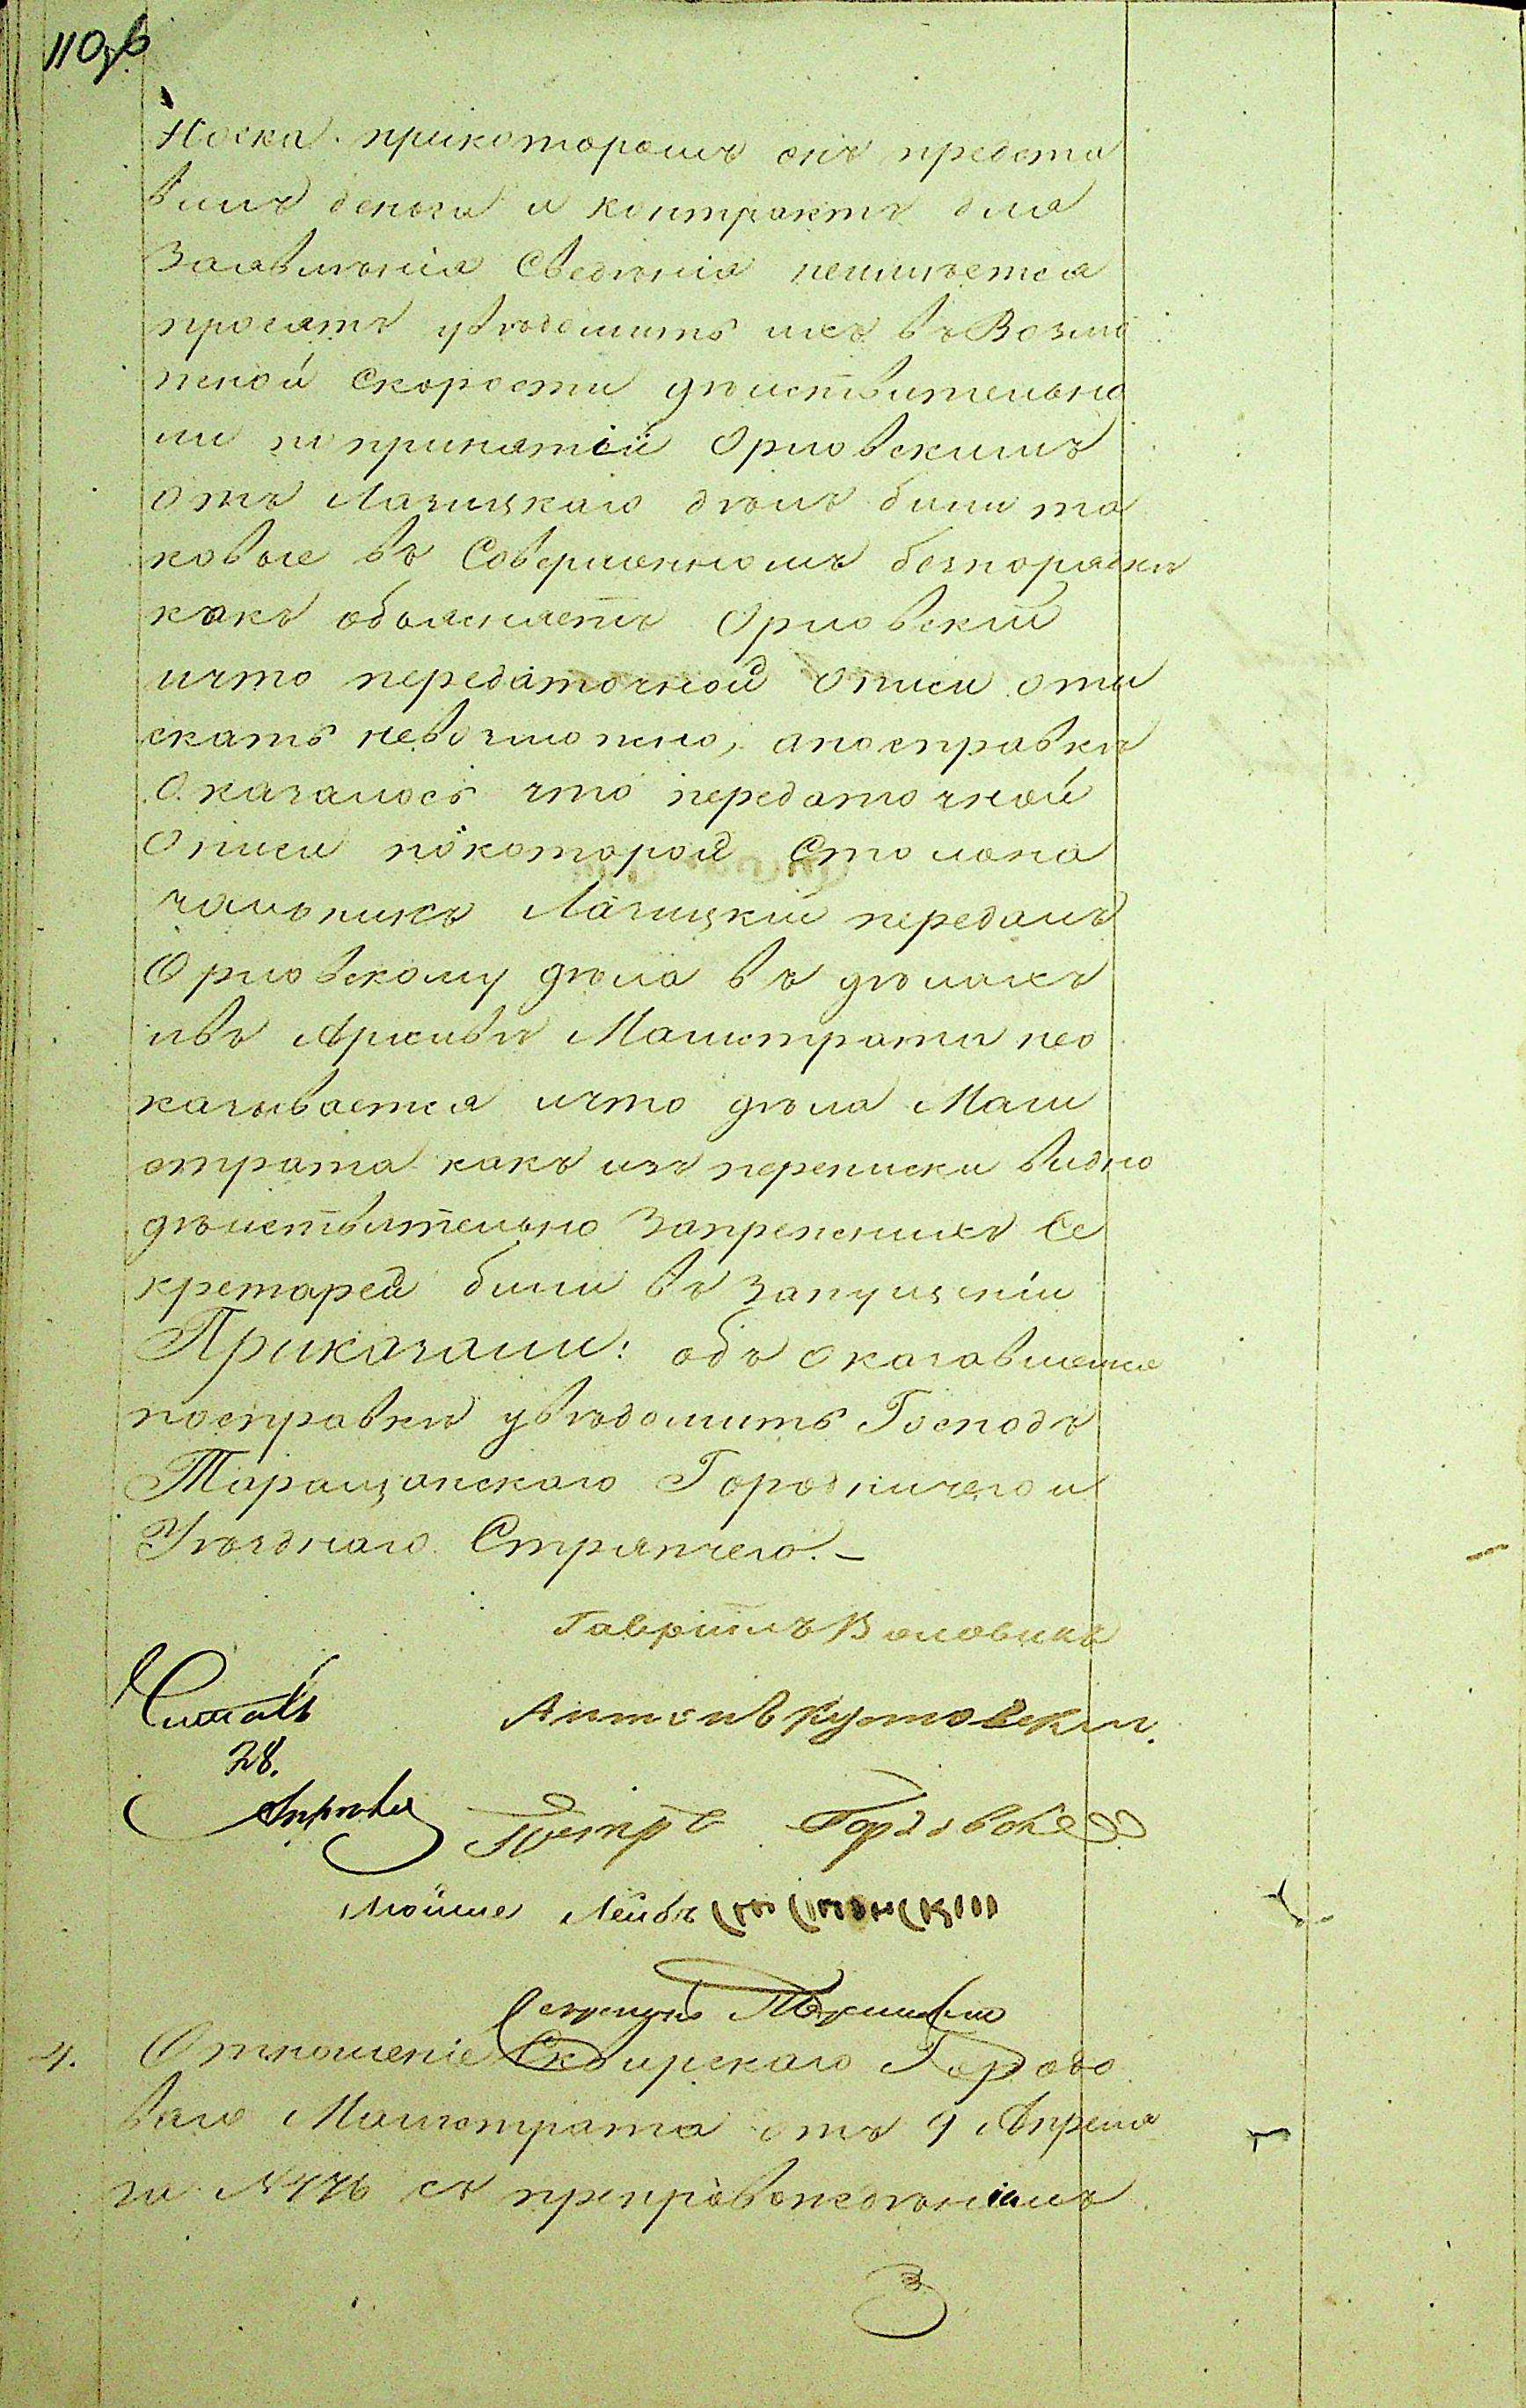 110 об
Носка прикоторомъ онъ предста
вилъ деньги и контрактъ для
Заявленія Сведенія неимѣется
просятъ уведомить ихъ въ Возмо
жной Скорости дѣиствительно
ли попринятіи Орловскимъ
отъ Лазицкаго дѣлъ были та
ковые въ Совершенномъ безпорядкѣ
какъ объясняетъ Орловскій
ичто передаточной описи оты
скать невозможно, апосправкѣ
Оказалось что передаточной
Описи покоторой Столона
чальникъ Лазицкій передалъ
Орловскому дѣла въ дѣлахъ
ивъ Архивѣ Магистрата нео
казывается ичто дѣла Маги
страта какъ изъ переписки видно
дѣиствительно Запрежнихъ Се
кретарей были въ Запущеніи
Приказали: объ оказавшемся
посправкѣ увѣдомить Господъ
Таращанскаго Городничего и
Уѣзднаго Стряпчего. –
Гавріилъ Воловикъ
Читалъ Антонъ Кутовскій.
28.
Апрѣля Петръ
Мойше Лейбъ
Секретарь
4. Отношеніе Сквирскаго Городо
ваго Магистрата отъ 9 Апреля
за №776 съ препровожденіемъ